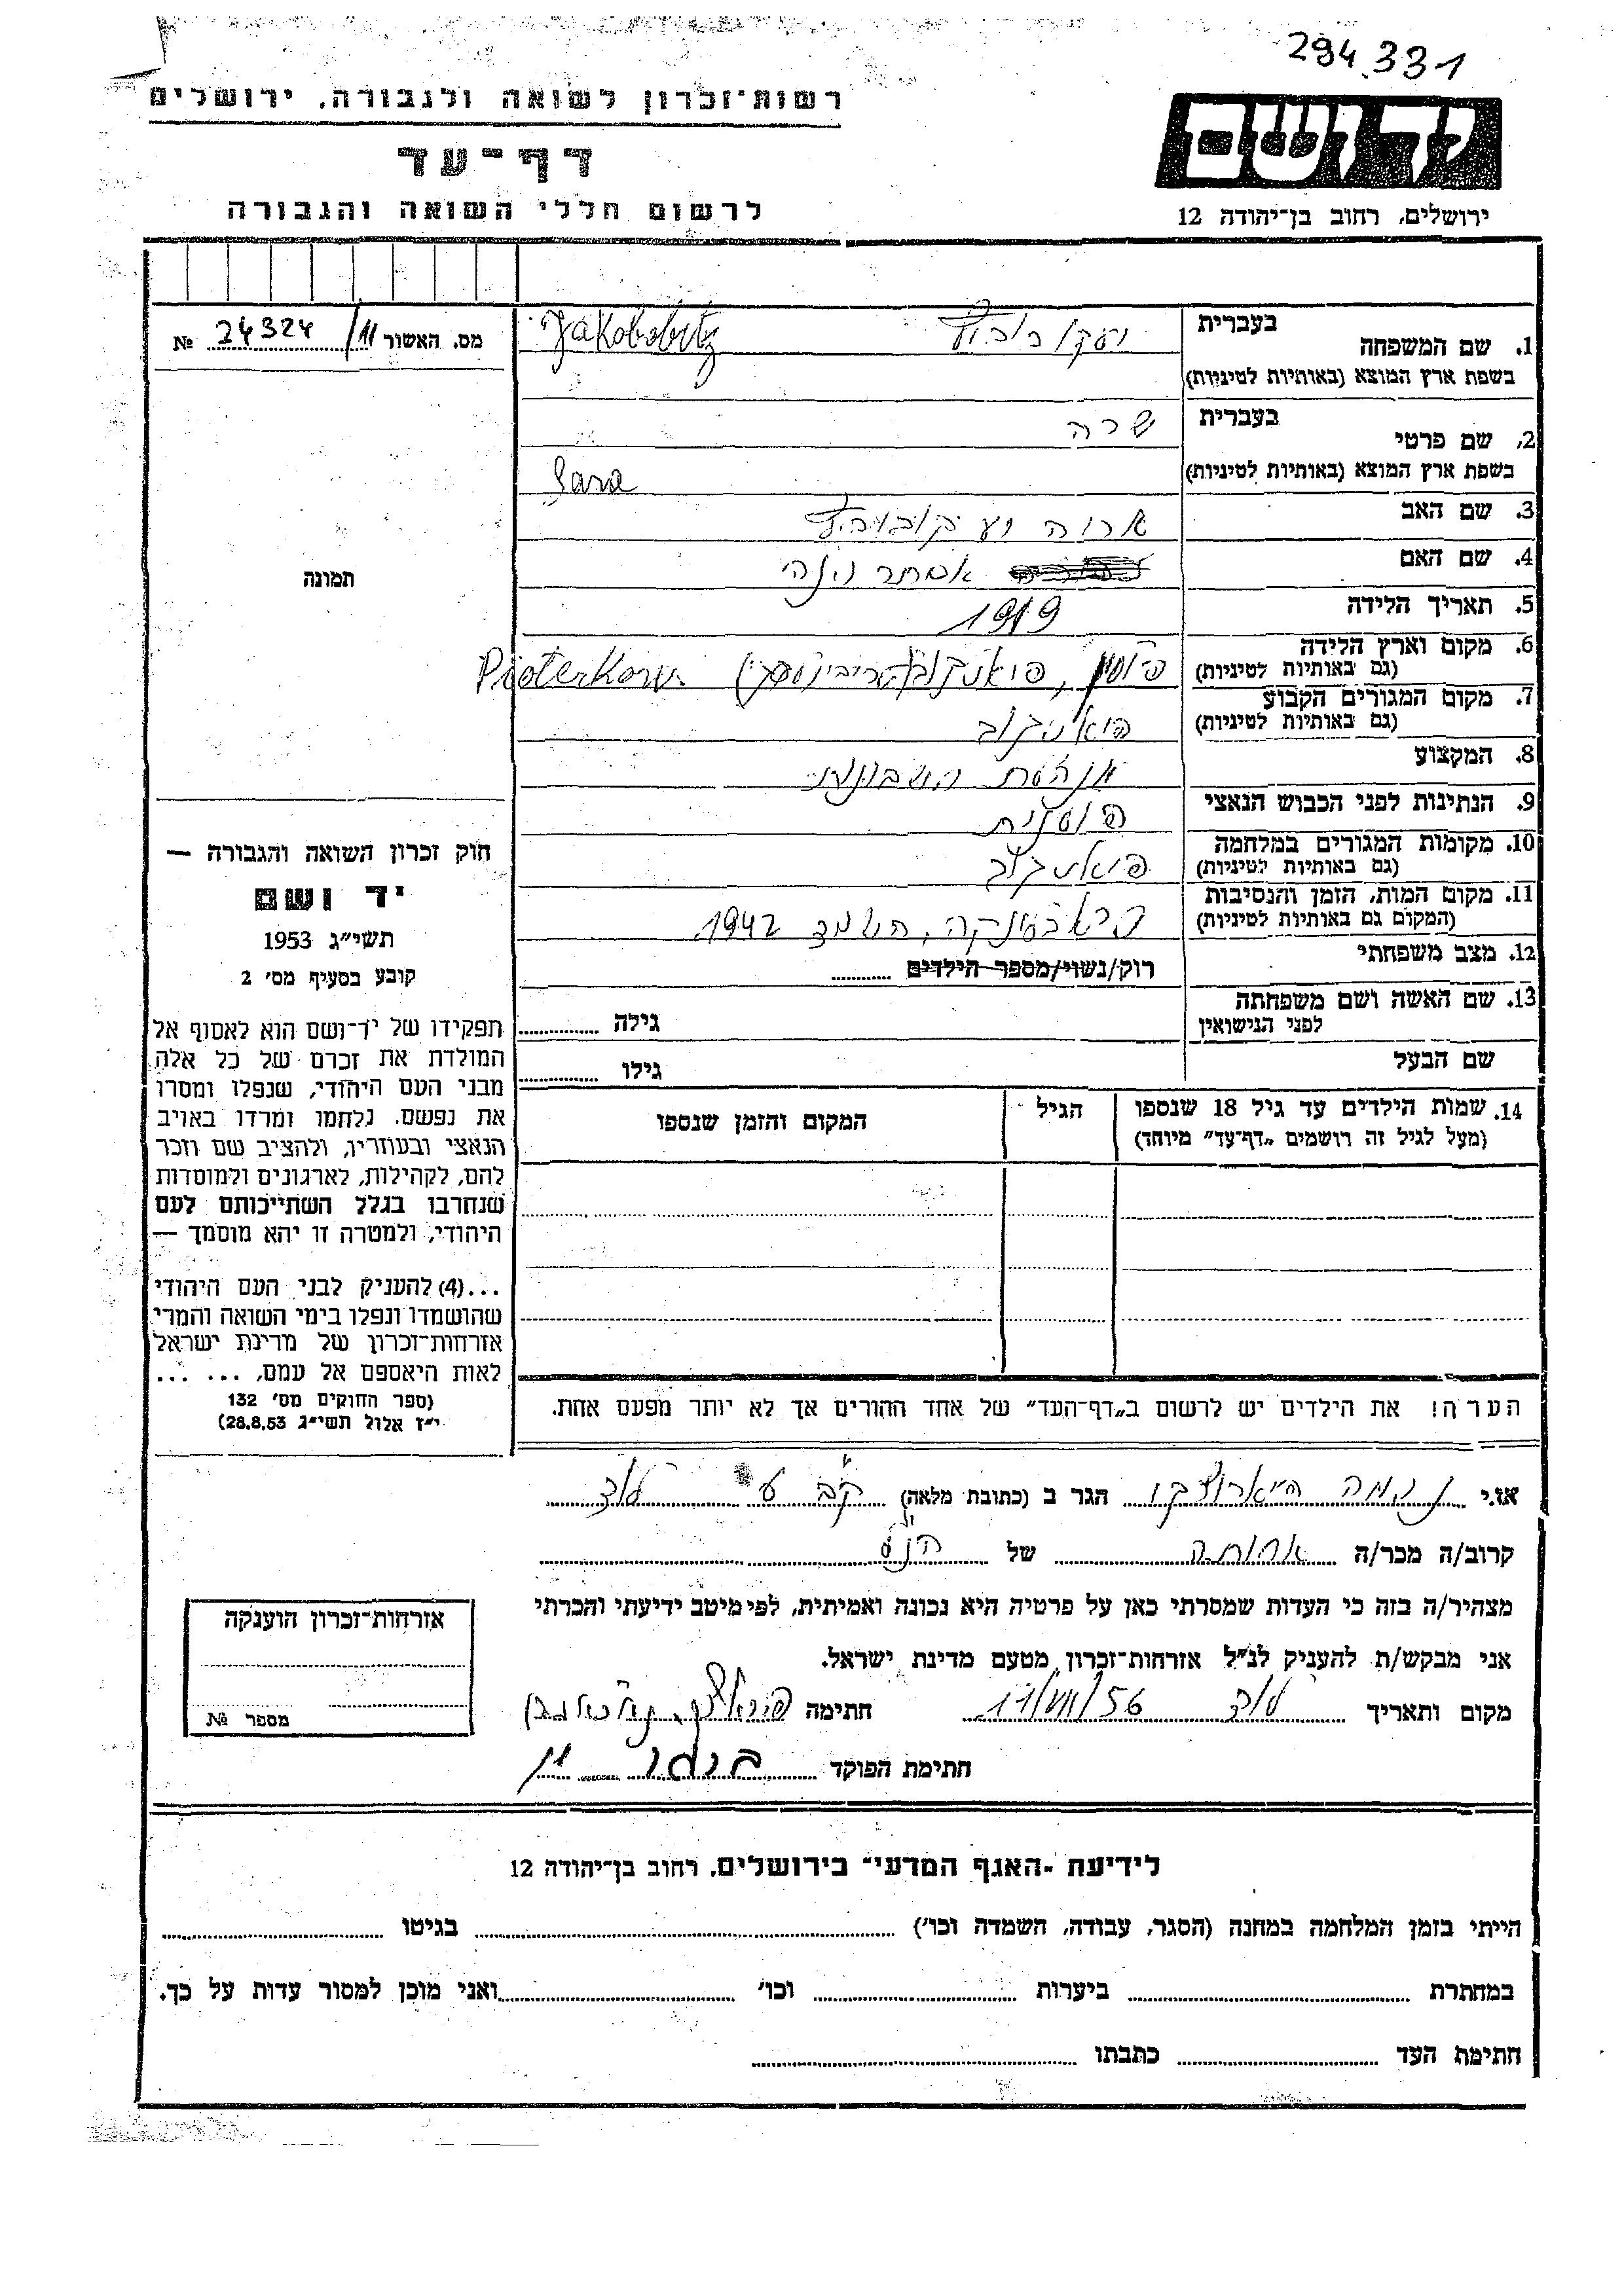 294331
רשות־זכרון לשואה ולגבורה, ירושלים
דף־עד
לרשום חללי השואה והגבורה
יד ושם
ירושלים, רחוב בן־יהודה 12
מס. האשור 11/ 24324 №
תמונה
חוק זכרון השואה והגבורה —
יד ושם
תשי״ג 1953
קובע בסעיף מס׳ 2
תפקידו של יד־ושם הוא לאסוף אל
המולדת את זכרם של כל אלה
מבני העם היהודי, שנפלו ומסרו
את נפשם, נלחמו ומרדו באויב
הנאצי ובעוזריו, ולהציב שם וזכר
להם, לקהילות, לארגונים ולמוסדות
שנחרבו בגלל השתייכותם לעם
היהודי, ולמטרה זו יהא מוסמך —
...(4) להעניק לבני העם היהודי
שהושמדו ונפלו בימי השואה והמרי
אזרחות־זכרון של מדינת ישראל
לאות היאספם אל עמם, ... ...
(ספר החוקים מס׳ 132
י״ז אלול תשי״ג 28.8.53)
1. שם המשפחה בעברית יעקובוביץ Jakobobitz
בשפת ארץ המוצא (באותיות לטיניות)
2. שם פרטי בעברית שרה
בשפת ארץ המוצא (באותיות לטיניות) Sara
3. שם האב אריה יעקובוביץ
4. שם האם אסתר
5. תאריך הלידה 1919
6. מקום וארץ הלידה פולין, Pioterkow
(גם באותיות לטיניות)
7. מקום המגורים הקבוע
(גם באותיות לטיניות)
8. המקצוע הנהלת חשבונות
9. הנתינות לפני הכבוש הנאצי פולנית
10. מקומות המגורים במלחמה
(גם באותיות לטיניות)
11. מקום המות, הזמן והנסיבות טרבלינקה, 1942
(המקום גם באותיות לטיניות)
12. מצב משפחתי רוק/נשוי/מספר הילדים
13. שם האשה ושם משפחתה גילה
לפני הנישואין
שם הבעל גילו
14. שמות הילדים עד גיל 18 שנספו הגיל המקום והזמן שנספו
(מעל לגיל זה רושמים „דף־עד״ מיוחד)
הערה! את הילדים יש לרשום ב„דף־העד״ של אחד ההורים אך לא יותר מפעם אחת.
אנ.י נחמה הגר ב (כתובת מלאה) לוד
קרוב/ה מכר/ה אחותה של הנ״ל
מצהיר/ה בזה כי העדות שמסרתי כאן על פרטיה היא נכונה ואמיתית, לפי מיטב ידיעתי והכרתי
אני מבקש/ת להעניק לנ״ל אזרחות־זכרון מטעם מדינת ישראל.
מקום ותאריך לוד 17/VII/56 חתימה
חתימת הפוקד
אזרחות־זכרון הוענקה
מספר №
לידיעת ״האגף המדעי״ בירושלים, רחוב בן־יהודה 12
הייתי בזמן המלחמה במחנה (הסגר, עבודה, השמדה וכו׳) בגיטו
במחתרת ביערות וכו׳ ואני מוכן למסור עדות על כך.
חתימת העד כתבתו